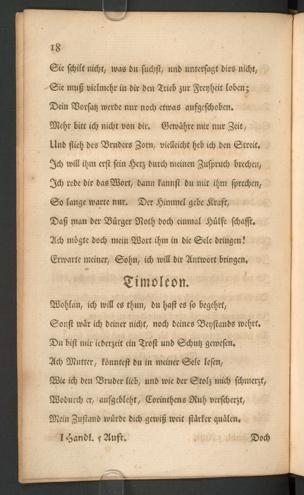 18
Sie schilt nicht, was du suchst, und untersagt dirs nicht,
Sie muß vielmehr in dir den Trieb zur Freyheit loben;
Dein Vorsatz werde nur noch etwas aufgeschoben.
Mehr bitt ich nicht von dir. Gewähre mir nur Zeit,
Und flieh des Bruders Zorn, vielleicht heb ich den Streit.
Ich will ihm erst sein Herz durch meinen Zuspruch brechen,
Ich rede dir das Wort, dann kannst du mit ihm sprechen,
So lange warte nur. Der Himmel gebe Kraft,
Daß man der Bürger Noth doch einmal Hülfe schafft.
Ach mögte doch mein Wort ihm in die Sele dringen!
Erwarte meiner, Sohn, ich will dir Antwort bringen.
Timoleon.
Wohlan, ich will es thun, du hast es so begehrt,
Sonst wär ich deiner nicht, noch deines Beystands wehrt.
Du bist mir iederzeit ein Trost und Schutz gewesen.
Ach Mutter, könntest du in meiner Sele lesen,
Wie ich den Bruder lieb, und wie der Stolz mich schmerzt,
Wodurch er, aufgebleht, Corinthens Ruh verscherzt,
Mein Zustand würde dich gewiß weit stärker quälen.
I Handl. 5 Auftr. Doch